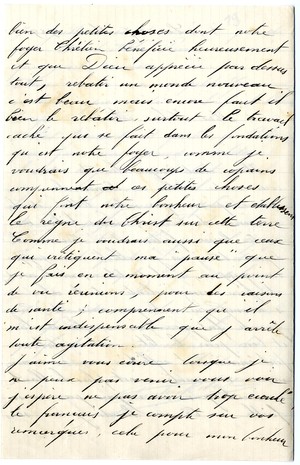 bien des petites choses dont notre
foyer Chrétien bénéficie heureusement
et que Dieu apprécie par dessus
tout, rebâtir un monde nouveau
c'est beau mais encore faut il
bien le rebâtir, surtout le travail
caché qui se fait dans les fondations
qu'est notre foyer, comme je
voudrais que beaucoups de copains
comprennent ces petites choses
qui font notre bonheur et
le règne du Christ sur cette terre
Comme je voudrais aussi que ceux
qui critiquent ma "pause" que
je fais en ce moment au point
de vue réunions, pour des raisons
de santé, comprennent qu'il
m'est indispensable que j'arrête
toute agitation.
J'aime vous écrire lorsque je
ne peux pas venir vous voir
j'espère ne pas avoir trop
le je compte sur vos
remarques, cela pour mon bonheur